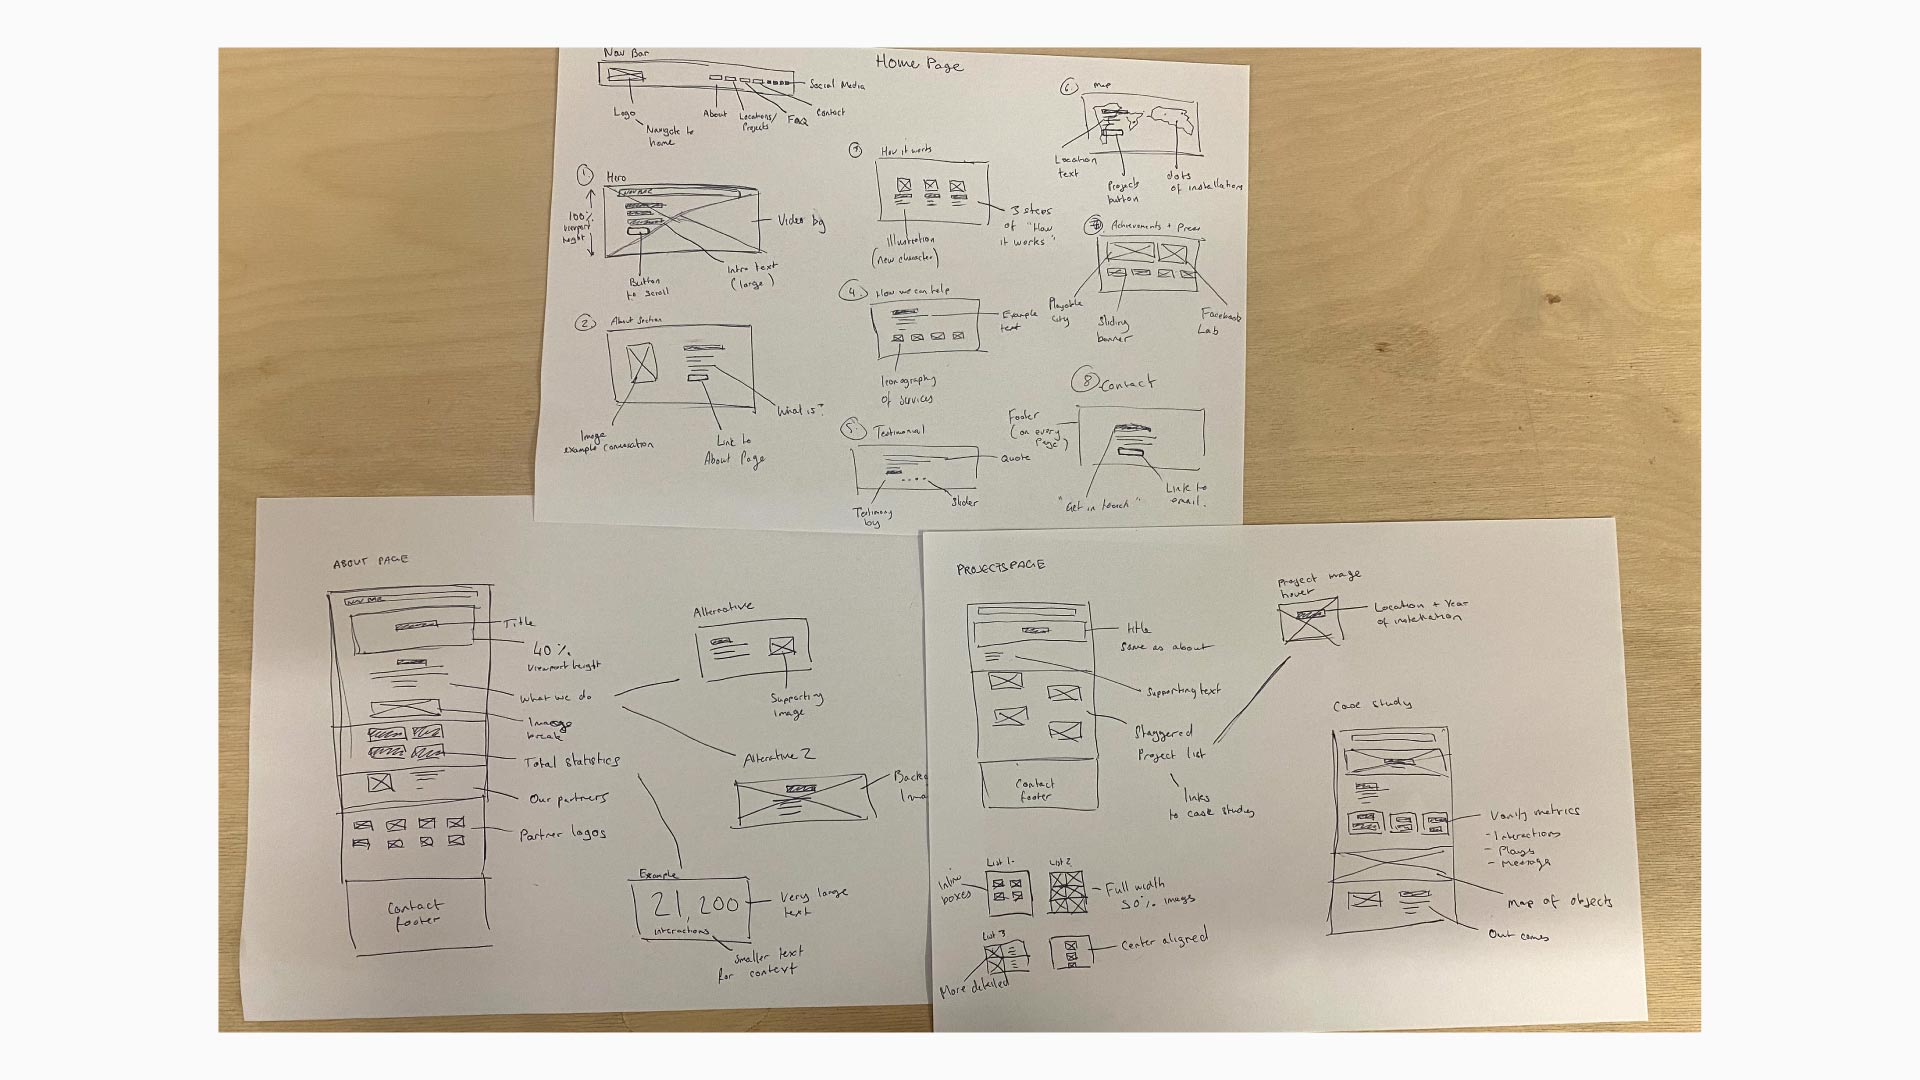 Home Page
Nav Bar
Logo
Navigate to
home
About
Locations/
Projects
FAQ
Contact
Social Media
1
Hero
NAV BAR
100%
viewport
height
Video bg
Button
to scroll
Intro text
(large)
2
About Section
Image
example conversation
Link to
About Page
What is?
3
How it works
Illustration
(new character)
3 steps
of "How
it works"
4.
How we can help
Example
text
Iconography
of services
5.
Testimonial
Quote
Testimony
by
Slider
6.
Map
Location
text
Projects
button
dots
of installations
Achievements + Press
Playable
City
Sliding
banner
Facebook
Lab
8
Contact
Footer
(on every
page)
"Get in touch"
Link to
email.
ABOUT PAGE
NAV BAR
Title
40%
viewport height
What we do
Image
break
Total statistics
Our partners
Partner logos
Contact
footer
Alternative
Supporting
image
Alternative 2
Example
21,200
interactions
Very large
text
Smaller text
for context
PROJECTS PAGE
title
Same as about
Supporting text
Staggered
Project list
links
to case study
Contact
footer
Project image
hover
Location + Year
of installation
Case study
Vanity metrics
- Interactions
- Plays
- Message
Map of objects
Out comes
List 1.
Inline
boxes
List 2
Full width
50% images
List 3
More detailed
Center aligned